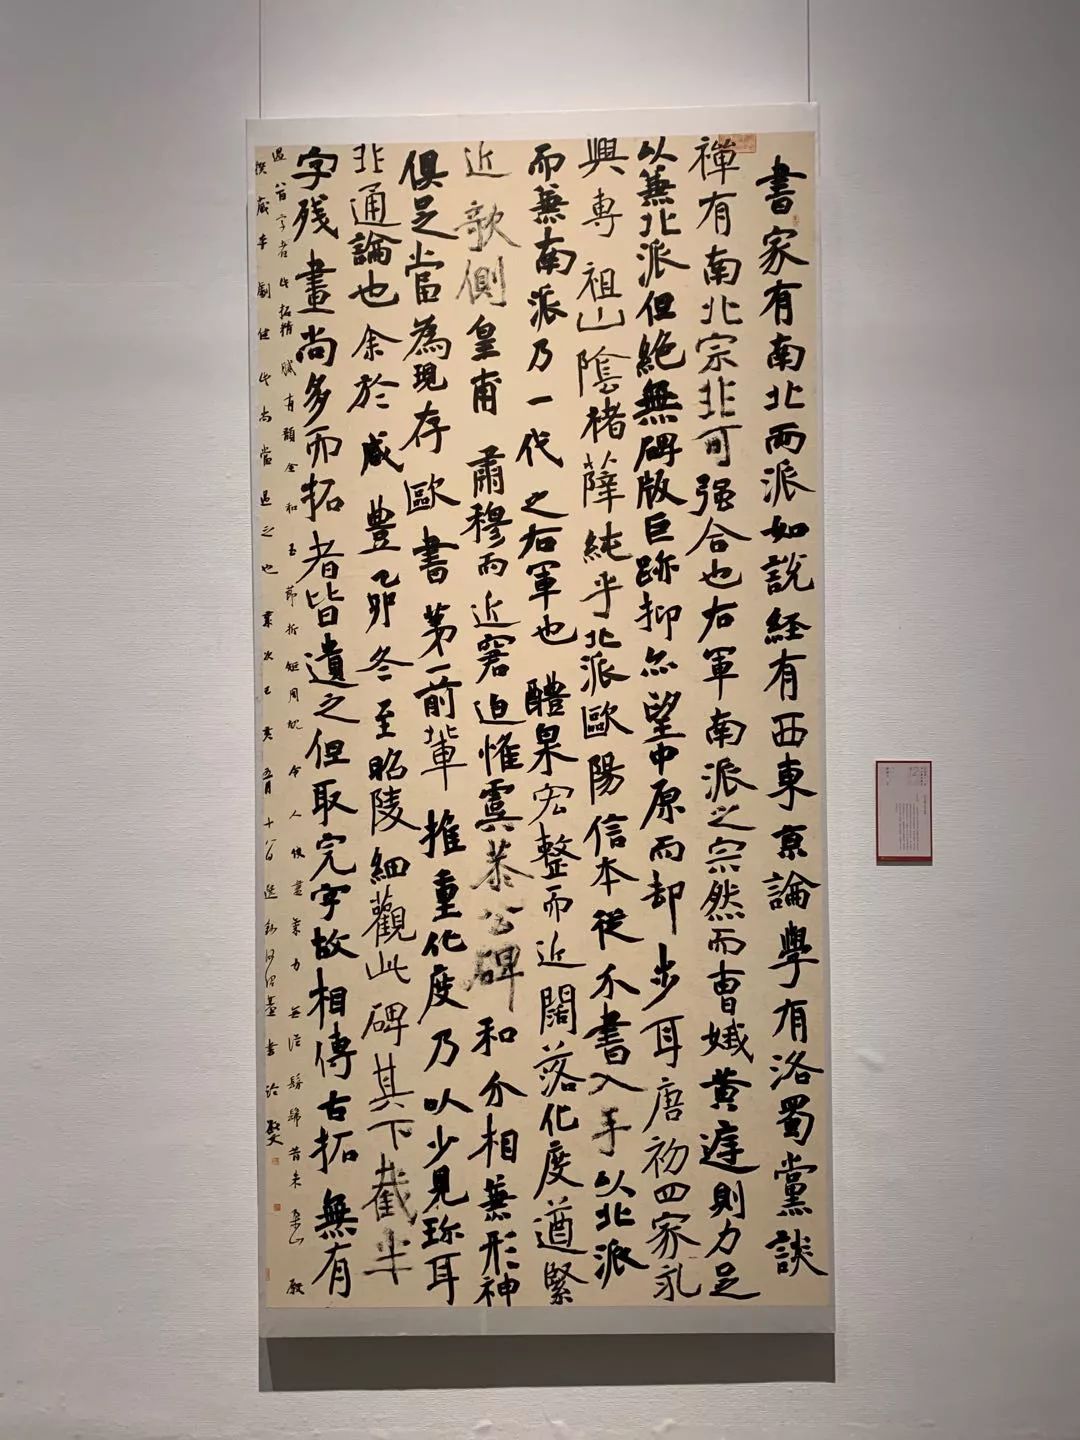 書家有南北兩派如說経有西東京論學有洛蜀黨談
禪有南北宗非可强合也右軍南派之宗然而曹娥黄庭則力足
以兼北派但絶無碑版巨跡抑亦望中原而却步耳唐初四家永
興專祖山陰褚薛純乎北派歐陽信本從分書入手以北派
而兼南派乃一代之右軍也醴泉宏整而近闊落化度遒緊
近欹側皇甫肅穆而近窘迫惟虞恭公碑和介相兼形神
俱足當為現存歐書第一前輩推重化度乃以少見珎耳
非通論也余於咸豊乙卯冬至昭陵細觀此碑其下截半
字残畫尚多而拓者皆遺之但取完字故相傳古拓無有
過 者此拓精腻有韻金和玉節折矩周規令人